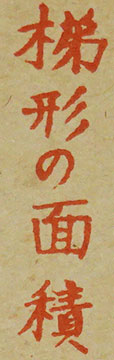 梯形の面積